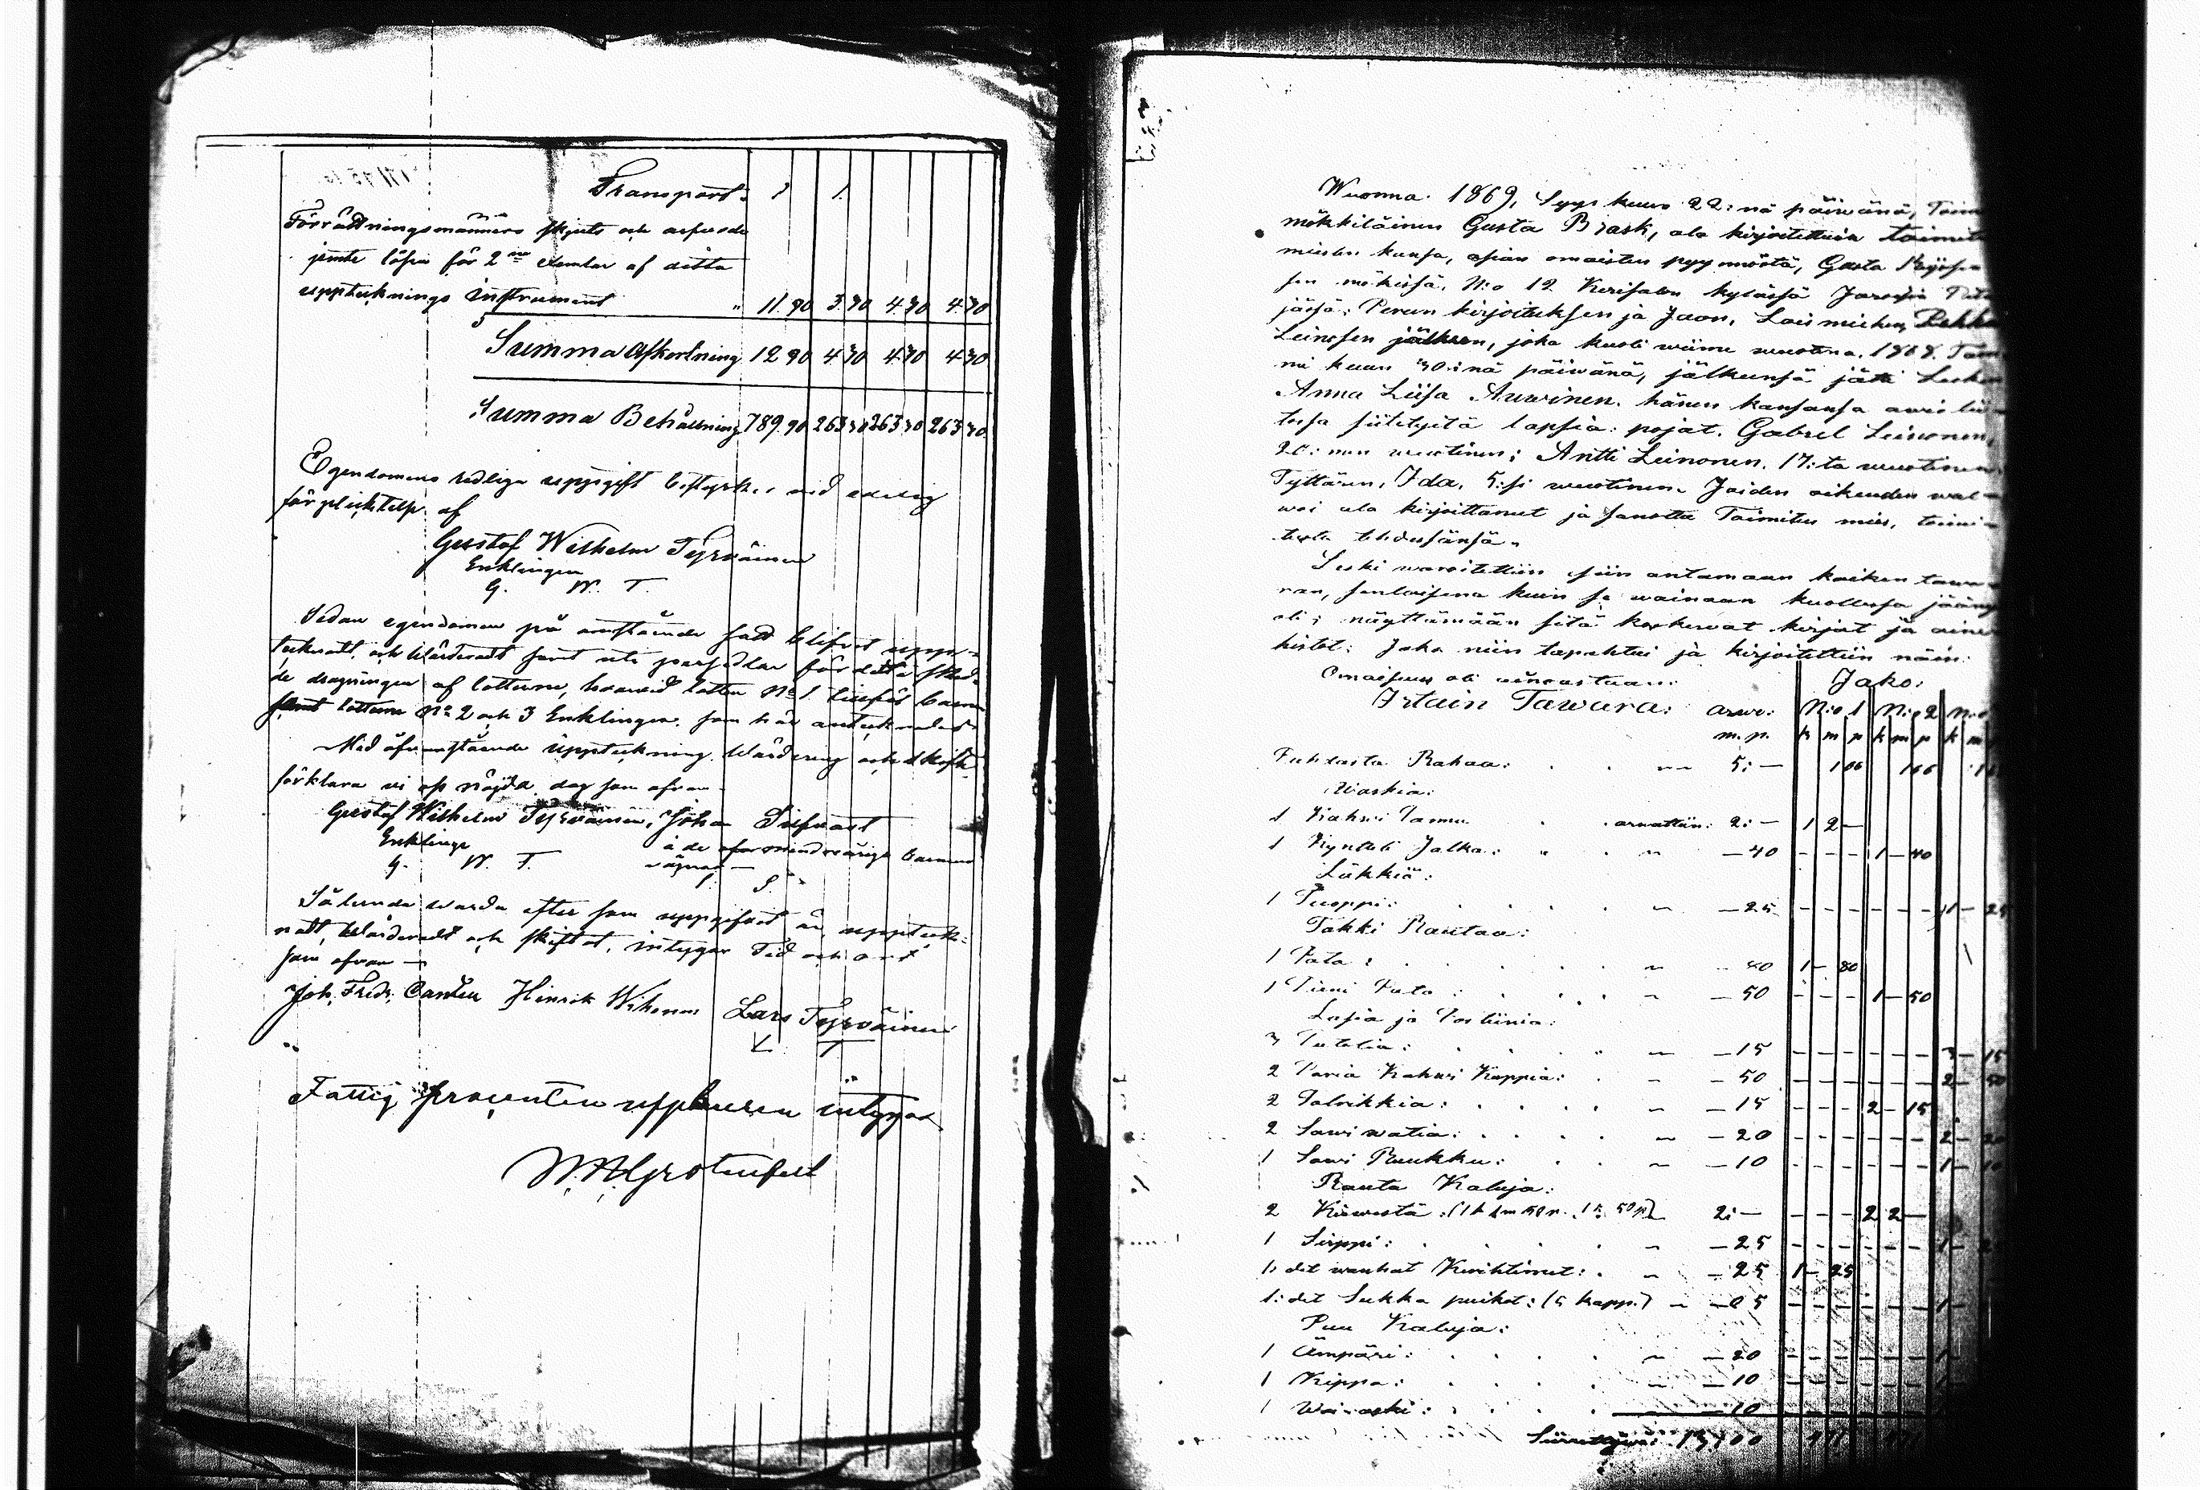 Transport:
Förrättningsmänners skjuts och arfvode
jemte lösen för 2ne exemlar af detta
uppteknings instrument " 11. 90 3. 90 4. 30 4. 30
Summa Afkortning 12 90 4. 30 4. 30 4. 30
Summa Behållning 789. 90 263 30 263 30 263 30.
Egendomens redliga uppgift bestyrkes vid edelig
förpliktelse af
Gustaf Wilhelm Tyrväinen
Enklingen
G. W. T.
Sedan egendomen på omstående sätt blifvit upp-
teknatt, och Wärderatt samt uti parsedlar fördelt skedde
de dragningen af lotterna, hvarvid lotten No 1 tillföll barnen
samt lotterna No 2 och 3 Enklingen. som här anteknades.
Med ofvanstående uppteckning Wärdering och skifte
förklara vi oss nöjda dag som ofvan
Gustaf Wilhelm Tyrväinen, Johan Sifvast
Enklinge å de omindreåriga barnens
G. W. T. vägnar
J. S.
Sålunda warda efter som uppgifvet är, upptek-
natt, Wärderadt och skiftat, intygar Tid och ort
som ofvan —
Joh. Fredr. Cantén Hinrik Wihonen Lars Tyrväinen
L T
Fattig procenten uppburen intygar
W. A. Grotenfelt
Wuonna 1869, Syys kuun 22:nä päivänä,
mökkiläinen Gusta Brask, ala kirjoitettuin toimitus
miesten kansa, asian omaisten pyynnöstä, Gusta
sen mökissä, N:o 12 Kerisalon kylässä Joroisin
jässä; Perun kirjoituksen ja Jaon, Loismiehen, Pekka
Leinosen jälkeen, joka kuoli viime vuotena. 1868. Tam
mi kuun 30:nä päivänä, jälkeensä jätti Lesken
Anna Liisa Auvinen. hänen kansansa avioliit-
tosa siitetyitä lapsia: pojat. Gabriel Leinonen,
20:nen vuotinen; Antti Leinonen. 17:ta vuotinen:
Tyttären, Ida, 5:si vuotinen. Joiden oikeuden val-
voi ala kirjoittanut ja sanottu Toimitus mies, toimi-
tusta tehdesänsä.
Leski varoitettiin siin antamaan kaiken tava-
ran, senlaisena kuin se vainaan kuollessa jäänyt
oli; näyttämään sitä koskevat kirjat ja aine
histot: Joka niin tapahtui ja kirjoitettiin näin:
Omaisuus oli ainoastaan: Jako:
Irtain Tawara: arvo: N:o 1 N:o 2 N:o
m. p. k m p k m p k m
Puhdasta Rahaa: 5: — 1 66 1 66
Waskia:
1 Kahvi Pannu arvattiin: 2: — 1 2 —
1 Kynteli Jalka: — 40 1 — 40
Läkkiä:
1 Tuoppi: — 25 1 — 25
Takki Rautaa:
1 Pata: — 80 1 — 80
1 Pieni Pata: — 50 1 — 50
Lasia ja Posliinia:
3 Putelia: — 15 3 — 15
2 Paria Kahvi Koppia: — 50 2 — 50
2 Talrikkia: — 15 2 — 15
2 Savi vatia: — 20 2 — 20
1 Savi Ruukku: — 10 1 — 10
Rauta Kaluja:
2 Kirvestä: 2: — 2 2 —
1 Sirppi: — 25 1 — 2
1: det vanhat Keritsimet: — 25 1 — 25
1: det Sukka puikot: (5 kapp.) — 05 1 —
Puu Kaluja:
1 Ämpäri: — 20 1
1 Kippa: — 10 1
1 — 10
Siirrettäväi: 13 00